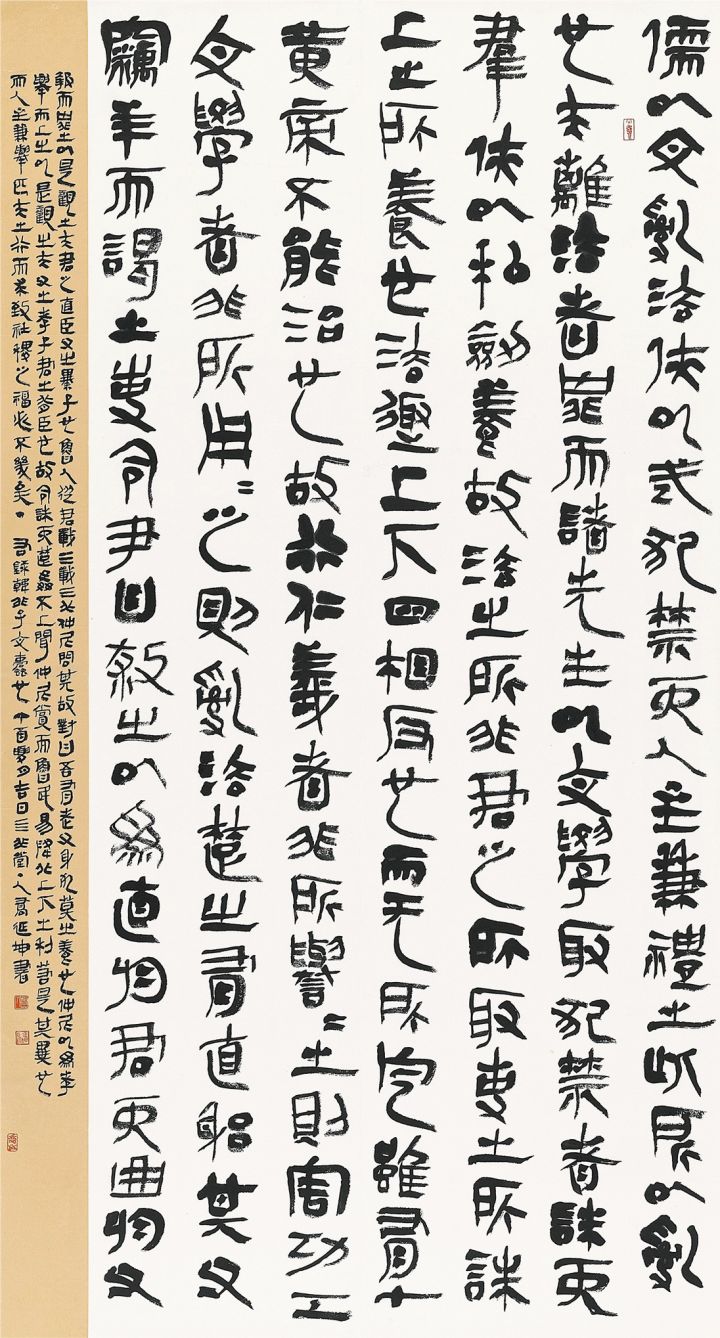 儒以文亂法俠以武犯禁而人主兼禮之此所以亂
也夫離法者罪而諸先生以文學取犯禁者誅而
羣俠以私劍養故法之所非君之所取吏之所誅
上之所養也法趣上下四相反也而无所定雖有十
黃帝不能治也故行仁義者非所譽=之則害功工
文學者非所用=之則亂法楚之有直躬其父
竊羊而謁之吏令尹曰殺之以為直於君而曲於父
報而罪之以是觀之夫君之直臣父之暴子也魯人從君戰三戰三北仲尼問其故對曰吾有老父身死莫之養也仲尼以為孝
舉而上之以是觀之夫父之孝子君之背臣也故令誅而楚姦不上聞仲尼賞而魯民易降北上下之利若是其異也
而人主兼舉匹夫之行而求致社稷之福必不幾矣 右錄韓非子五蠹也 月吉日三非堂人延坤書